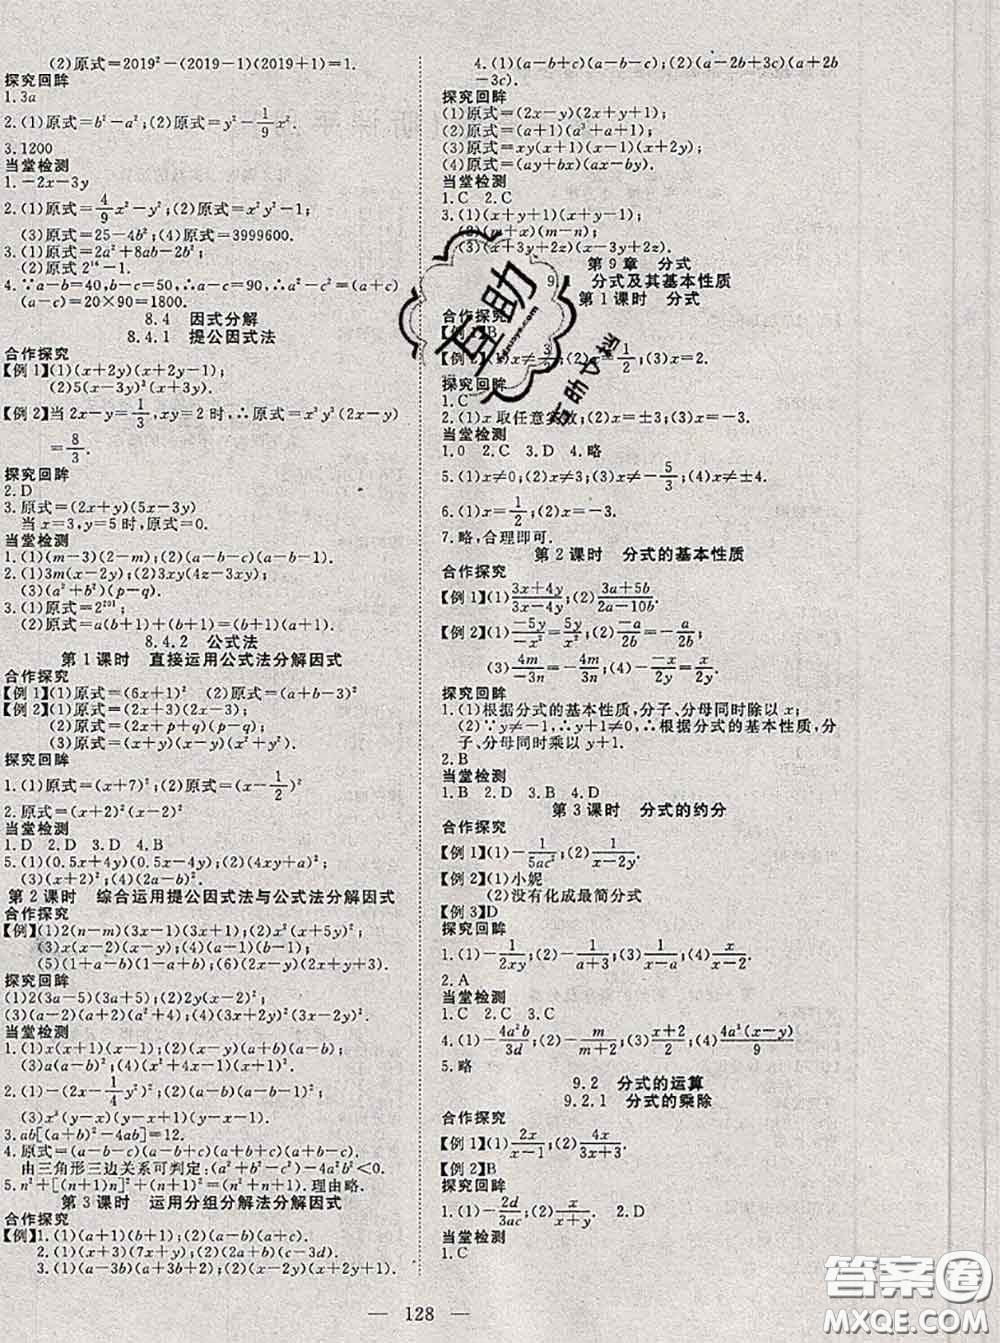 (2)原式=2019²-(2019-1)(2019+1)=1.
探究回眸
1.3a
2.(1)原式=b²-a²;(2)原式=y²-1/9x².
3.1200
当堂检测
1.-2x-3y
2.(1)原式=4/9x²-y²;(2)原式=x²y²-1;
(3)原式=25-4b²;(4)原式=3999600.
3.(1)原式=2a²+8ab-2b²;
(2)原式=2¹⁶-1.
4.∵a-b=40,b-c=50,∴a-c=90,∴a²-c²=(a+c)
(a-c)=20×90=1800.
8.4 因式分解
8.4.1 提公因式法
合作探究
【例1】(1)(x+2y)(x+2y-1);
(2)5(x-3y)²(x+y);
【例2】当2x-y=1/3,xy=2时,∴原式=x³y³(2x-y)
=8/3.
探究回眸
2.D
3.原式=(2x+y)(5x-3y)
当x=3,y=5时,原式=0.
当堂检测
1.(1)(m-3)(2-m);(2)(a-b-c)(a-b-1).
2.(1)3m(x-2y);(2)3xy(4z-3xy);
(3)(a²+b²)(p-q).
3.(1)原式=2²⁰¹
(2)原式=a(b+1)+(b+1)=(b+1)(a+1)
8.4.2 公式法
第1课时 直接运用公式法分解因式
合作探究
【例1】(1)原式=(6x+1)² (2)原式=(a+b-3)²
【例2】(1)原式=(2x+3)(2x-3);
(2)原式=(2x+p+q)(p-q);
(3)原式=(x-y)(x+y)(x²+y²).
探究回眸
1.(1)原式=(x+7)²;(2)原式=(x-1/2)²
2.原式=(x+2)²(x-2)²
当堂检测
1.D 2.D 3.D 4.B
5.(1)(0.5x+4y)(0.5x-4y);(2)(4xy+a)²;
(3)(2a-b)².
第2课时 综合运用提公因式法与公式法分解因式
合作探究
【例】(1)2(n-m)(3x-1)(3x+1);(2)x²(x+5y)²;
(3)x(x-2)(x-y);(4)(a-1)(b-1);
(5)(1+a-b)(1-a+b);(6)(2x-y+3)².
探究回眸
(1)2(3a-5)(3a+5);(2)2y(x-2)²;
(3)(a-2)(a+2)(a²+4);(4)-2xy(x-1)².
当堂检测
1.(1)x(x+1)(x-1);(2)(x-y)(x+y-1);
(3)a(a-b)²;(4)(2a-b)²(2a+b)².
2.(1)-(2x-1/4y)²;(2)(x-1)²(x+1)²;
(3)x³(y-x)(y-x)(y+x)(y²+x²).
3.ab[(a+b)²-4ab]=12.
4.原式=(a+b+c)(a+b-c)(a-b+c)(a-b-c);
由三角形三边关系可判定:(a²+b²-c²)-4a²b²<0.
5.n²+[(n+1)n]²+(n+1)²=[(n+1)n+1]².理由略.
第3课时 运用分组分解法分解因式
合作探究
【例】1.(1)(a+1)(b+1);(2)(ay+b)(a+c).
2.(1)(x+3)(7x+y);(2)(x+2y)(x+1).
3.(1)(a-1)(a+1)²;(2)(x+2y)(x-2y+1).
4.(1)(a-b+c)(a-b-c);(2)(a-2b+3c)(a+2b
-3c).
探究回眸
(1)原式=(2x-y)(2x+y-1);
(2)原式=(a+1)(a³+1)(a+1);
(3)原式=xy(x+1)(x-1)(x-y);
(4)原式=(ay+bx)(ax-by).
当堂检测
1.C 2.C
3.(1)(x+y+1)(x+y-1);
(2)(m+x)(m-n);
(3)(x+3y+2z)(x+3y-2z).
第9章 分式
9 分式及其基本性质
第1课时 分式
合作探究
【例1】B
【例2】(1)x≠3/2;(2)x=-1/2;(3)x=2.
探究回眸
1.C
2.(1)x取任意实数;(2)x=±3;(3)x=-3.
当堂检测
1.0 2.C 3.D 4.略
5.(1)x≠0;(2)x≠3;(3)x≠-5/3;(4)x≠±4.
6.(1)x=1/2;(2)x=-3.
7.略,合理即可.
第2课时 分式的基本性质
合作探究
【例1】(1)(3x+4y)/(3x-4y);(2)(3a+5b)/(2a-10b).
【例2】(1)(-5y)/(-x²)=5y/x²;(2)(-a)/(2b)=-a/(2b);
(3)4m/(-3n)=-4m/(3n);(4)-(-x)/(2y)=x/(2y).
探究回眸
1.(1)根据分式的基本性质,分子、分母同时除以x;
(2)∵y≠-1,∴y+1≠0,∴根据分式的基本性质,分
子、分母同时乘以y+1.
2.B
当堂检测
1.B 2.D 3.B 4.D
第3课时 分式的约分
合作探究
【例1】(1)-1/(5ac²);(2)1/(x-2y).
【例2】(1)小妮
(2)没有化成最简分式
【例3】D
探究回眸
1.(1)-1/(2xy);(2)-1/(a+3);(3)x/(x-y).
2.A
当堂检测
1.C 2.C 3.C
4.(1)-4a²b/3d;(2)-m/(m+2);(3)(x+2)/(x-2);(4)4a²(x-y)/9
5.略
9.2 分式的运算
9.2.1 分式的乘除
合作探究
【例1】(1)2x/(x-1);(2)4x/(3x+3).
【例2】B
探究回眸
1.(1)-2d/(3ac);(2)x/(x+y). 2.D
当堂检测
1.C
— 128 —
互助
互助文科
答案圈
MXQE.COM